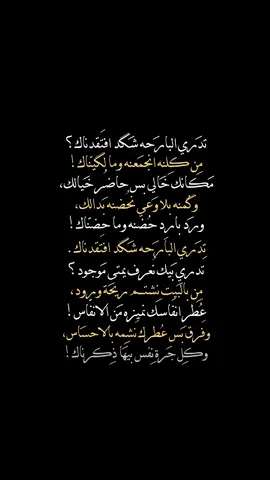 تدري البارحه شكد افتقدناك؟
من كلنه انجمعنه وما لكيناك!
مكانك خالي بس حاضر خيالك،
وكمنه بلا وعي نحضنه بدالك،
ورد بارد حضنه وما حضناك!
تدري البارحه شكد افتقدناك.
تدري بيك نعرف يمتى موجود؟
من بالبيت نشتم ريحة ورود،
عطر انفاسك نميزه من الانفاس!
وفرق بس عطرك نشمه بالاحساس،
وكل جرة نفس بيها ذكرناك!